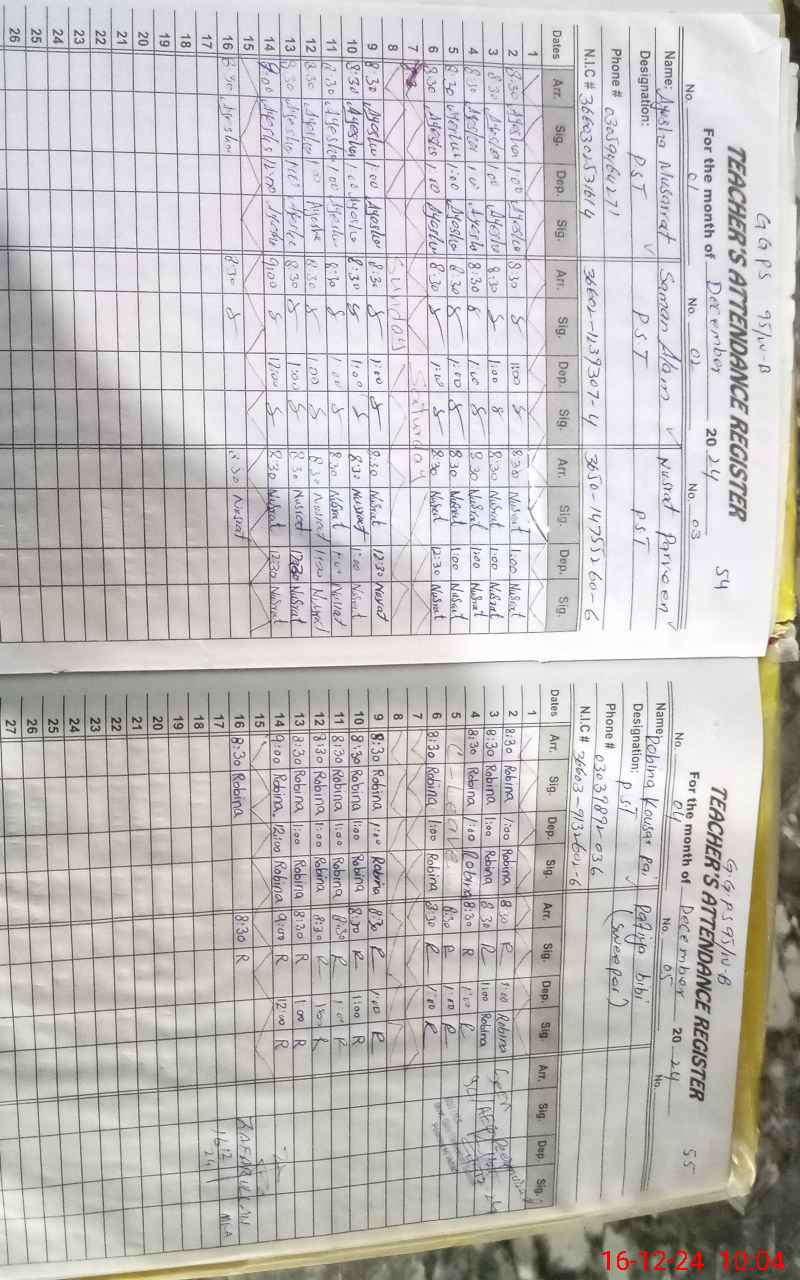 GGPS 95/W-B 54
TEACHER'S ATTENDANCE REGISTER
For the month of December 2024
No. 01 No. 02 No. 03
Name: Ayesha Musarrat Saman Alam Nusrat Parveen
Designation: PST PST PST
Phone # 03059464271
N.I.C # 36602-1239307-4
Dates Arr. Sig. Dep. Sig. Arr. Sig. Dep. Sig. Arr. Sig. Dep. Sig.
1
2 8:30 Ayesha 1:00 Ayesha 8:30 S 1:00 S 8:30 Nusrat 1:00 Nusrat
3 8:30 Ayesha 1:00 Ayesha 8:30 S 1:00 S 8:30 Nusrat 1:00 Nusrat
4 8:30 Ayesha 1:00 Ayesha 8:30 S 1:00 S 8:30 Nusrat 1:00 Nusrat
5 8:30 Ayesha 1:00 Ayesha 8:30 S 1:00 S 8:30 Nusrat 1:00 Nusrat
6 8:30 Ayesha 1:00 Ayesha 8:30 S 1:00 S 8:30 Nusrat 12:30 Nusrat
7 Saturday
8 Sunday
9 8:30 Ayesha 1:00 Ayesha 8:30 S 1:00 S 8:30 Nusrat 12:30 Nusrat
10 8:30 Ayesha 1:00 Ayesha 8:30 S 1:00 S 8:30 Nusrat 1:00 Nusrat
11 8:30 Ayesha 1:00 Ayesha 8:30 S 1:00 S 8:30 Nusrat 1:00 Nusrat
12 8:30 Ayesha 1:00 Ayesha 8:30 S 1:00 S 8:30 Nusrat 1:00 Nusrat
13 8:30 Ayesha 1:00 Ayesha 8:30 S 1:00 S 8:30 Nusrat Nusrat
14 9:00 Ayesha 12:00 Ayesha 9:00 S 12:00 S 8:30 Nusrat 12:30 Nusrat
15
16 8:30 Ayesha 8:30 S 8:30 Nusrat
17
18
19
20
21
22
23
24
25
26
GGPS 95/W-B 55
TEACHER'S ATTENDANCE REGISTER
For the month of December 2024
No. 04 No. 05 No.
Name: Robina Kousar bibi
Designation: PST (Sweeper)
Phone # 03039892036
N.I.C # 36603-9132602-6
Dates Arr. Sig. Dep. Sig. Arr. Sig. Dep. Sig. Arr. Sig. Dep. Sig.
1
2 8:30 Robina 1:00 Robina 8:30 R 1:00 Robina
3 8:30 Robina 1:00 Robina 8:30 R 1:00 Robina
4 8:30 Robina 1:00 Robina 8:30 R 1:00 R
5 C-Leave 8:30 R 1:00 R
6 8:30 Robina 1:00 Robina 8:30 R 1:00 R
7
8
9 8:30 Robina 1:00 Robina 8:30 R 1:00 R
10 8:30 Robina 1:00 Robina 8:30 R 1:00 R
11 8:30 Robina 1:00 Robina 8:30 R 1:00 R
12 8:30 Robina 1:00 Robina 8:30 R 1:00 R
13 8:30 Robina 1:00 Robina 8:30 R 1:00 R
14 9:00 Robina 12:00 Robina 9:00 R 12:00 R
15
16 8:30 Robina 8:30 R
17 16/12/24 MEA
18
19
20
21
22
23
24
25
26
27
16-12-24 10:04